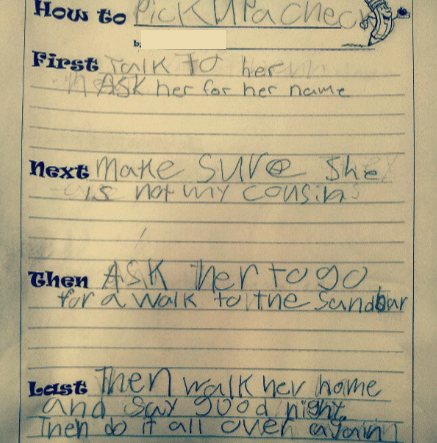 How to Pick Up a check
First Talk To her
ASK her for her name
Next Make Sure She
is not my cousin
Then ASK her to go
for a walk to the sandbar
Last Then walk her home
and say good night.
Then do it all over again!